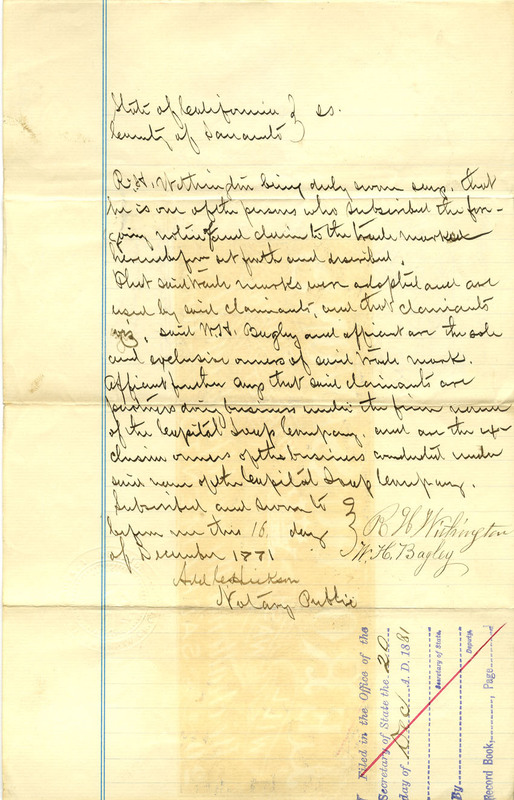 State of California } ss.
County of Sacramento
R. H. Withington being duly sworn says, that
he is one of the persons who subscribed the fore-
going notice and claim to the trade marks
hereinbefore set forth and described.
That said trade marks were adopted and are
used by said claimants, and that claimants
said W. H. Bagley and affiant are the sole
and exclusive owners of said trade marks.
Affiant further says that said claimants are
partners doing business under the firm name
of the Capital Soap Company, and are the ex-
clusive owners of the business conducted under
said name of the Capital Soap Company.
Subscribed and sworn to }
before me this 16. day R H Withington
of December 1881 W. H. Bagley
Notary Public
Filed in the Office of the
Secretary of State the 20
day of Dec A. D. 1881
Secretary of State.
By Deputy.
Record Book, Page